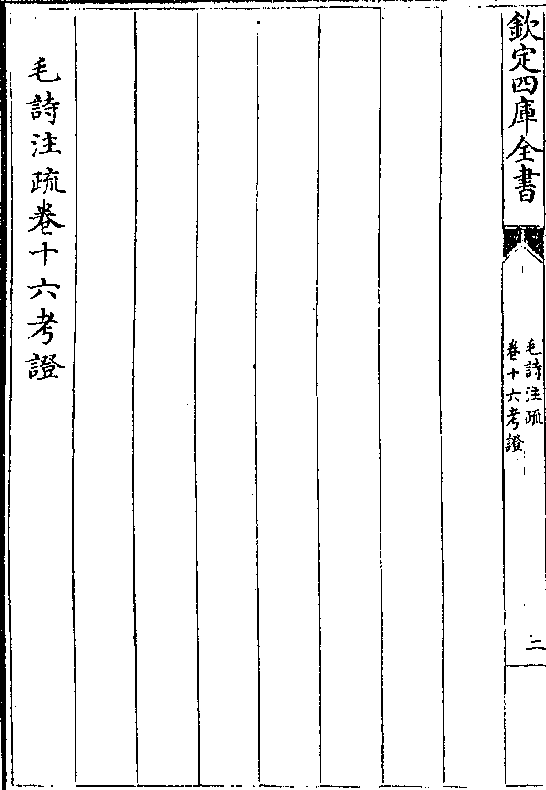 欽定四庫全書
毛詩注疏
卷十六考證
二
毛詩注疏卷十六考證